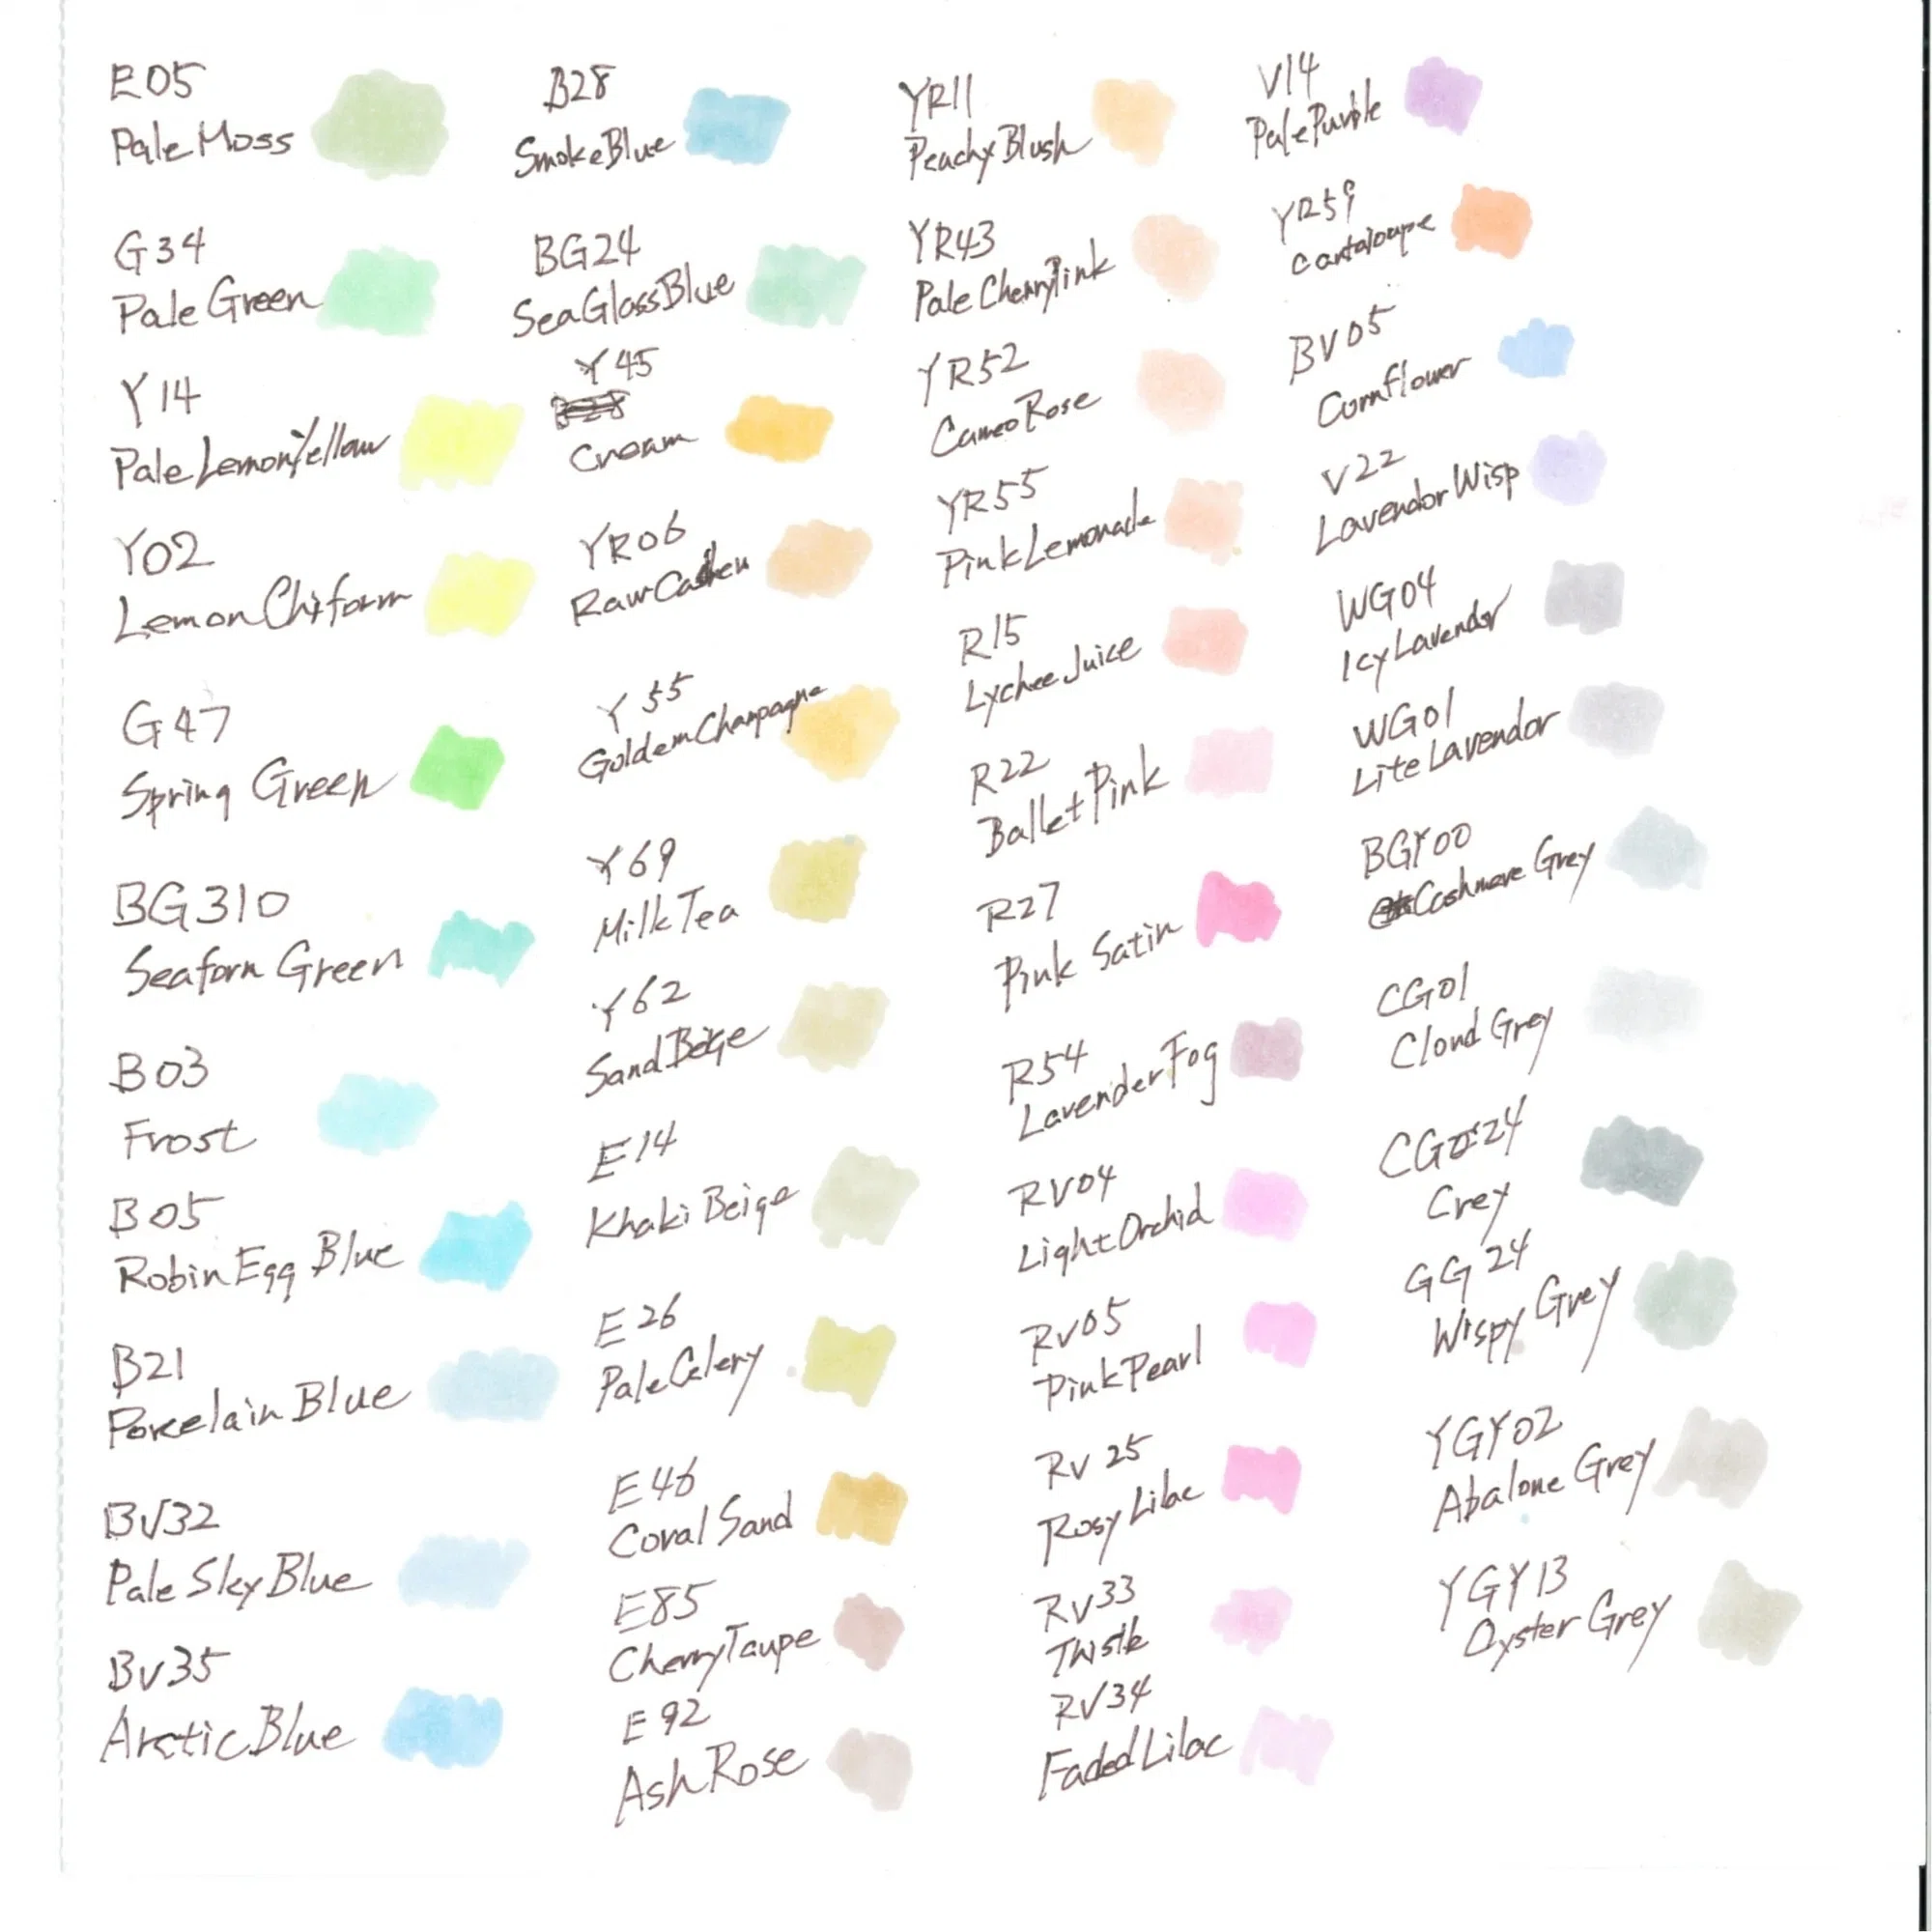 E05
Pale Moss
G34
Pale Green
Y14
Pale Lemon Yellow
Y02
Lemon Chiform
G47
Spring Green
BG310
Seaforn Green
B03
Frost
B05
Robin Egg Blue
B21
Porcelain Blue
BV32
Pale Sky Blue
BV35
Arctic Blue
B28
Smoke Blue
BG24
Sea Glass Blue
Y45
Cream
YR06
Raw Cashew
Y55
Golden Champagne
Y69
Milk Tea
Y62
Sand Beige
E14
Khaki Beige
E26
Pale Celery
E46
Coral Sand
E85
Cherry Taupe
E92
Ash Rose
YR11
Peachy Blush
YR43
Pale Cherry Pink
YR52
Cameo Rose
YR55
Pink Lemonade
R15
Lychee Juice
R22
Ballet Pink
R27
Pink Satin
R54
Lavender Fog
RV04
Light Orchid
RV05
Pink Pearl
RV25
Rosy Lilac
RV33
Thistle
RV34
Faded Lilac
V14
Pale Purple
YR59
Cantaloupe
BV05
Cornflower
V22
Lavendor Wisp
WG04
Icy Lavendor
WG01
Lite Lavendor
BGY00
Cashmere Grey
CG01
Cloud Grey
CG24
Crey
GG24
Wispy Grey
YGY02
Abalone Grey
YGY13
Oyster Grey